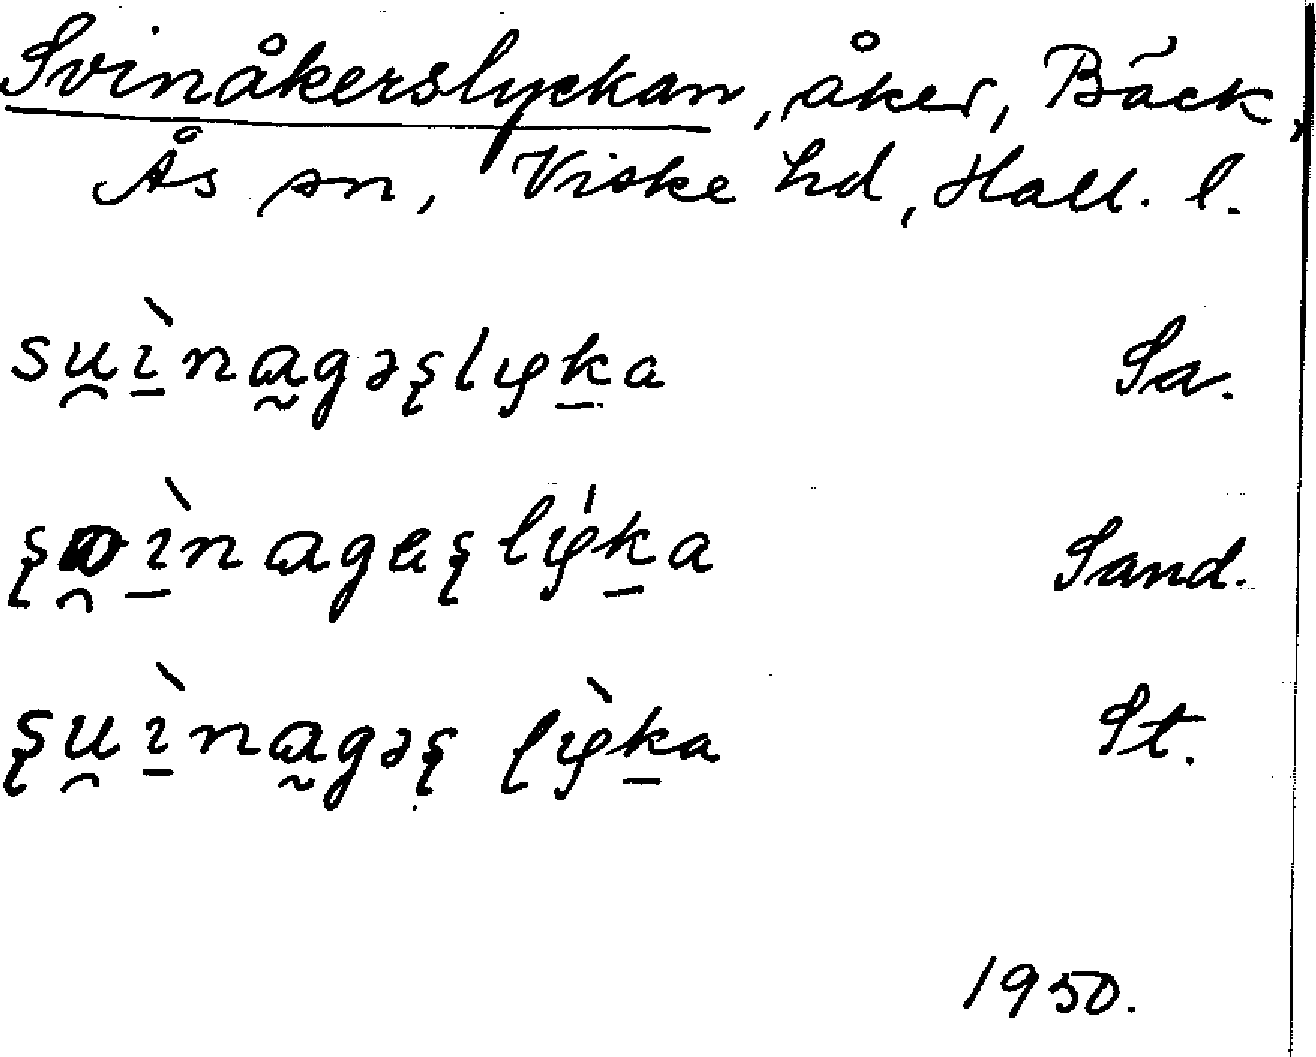 Svinåkerslyckan, åker, Bäck,
Ås sn, Viske hd, Hall. l.
su̯ı̱̀nɑ̰gəʂlyḵa Sa.
ʂu̯ı̱̀nɑgeʂlýḵa Sand.
ʂu̯ı̱̀nɑ̰gəʂ ɭỳḵa St.
1950.